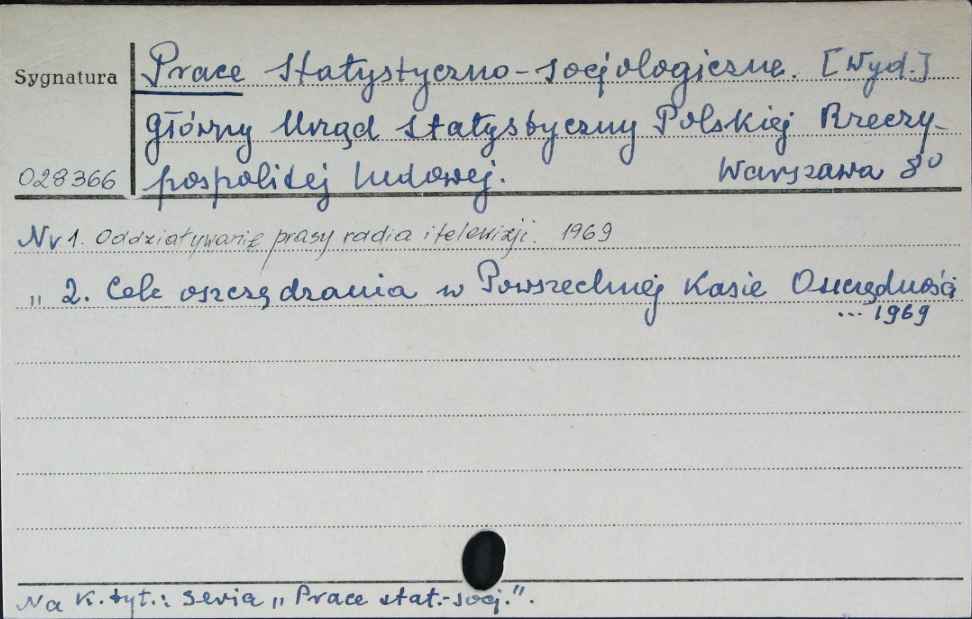 Sygnatura
Prace statystyczno-socjologiczne. [Wyd.]
Główny Urząd Statystyczny Polskiej Rzeczy-
028366 pospolitej Ludowej. Warszawa 8°
Nr 1. Oddziaływanie prasy radia i telewizji. 1969
„ 2. Cele oszczędzania w Powszechnej Kasie Oszczędności
... 1969
Na k. tyt.: Seria „Prace stat.-socj.".